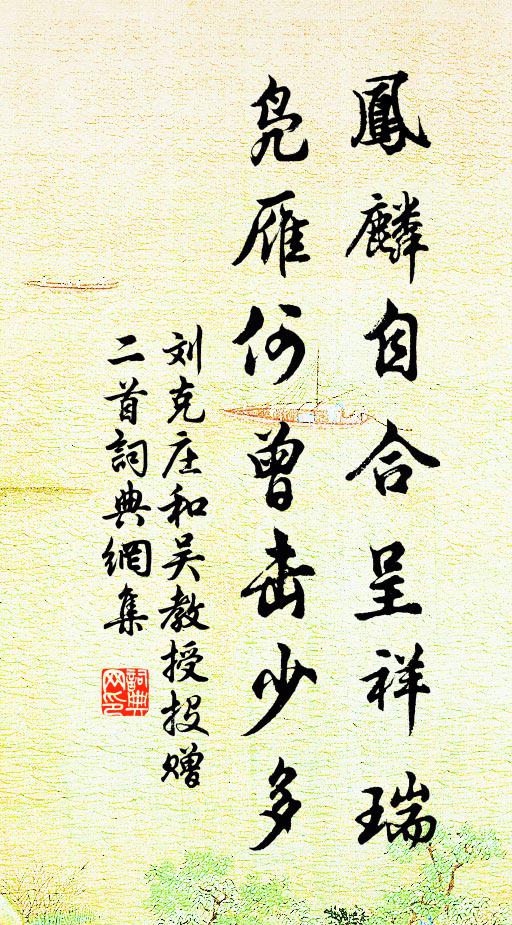 鳳麟自合呈祥瑞
鳧雁何曾击少多
刘克庄和吴教授投赠
二首詞典網集
詞典
网印